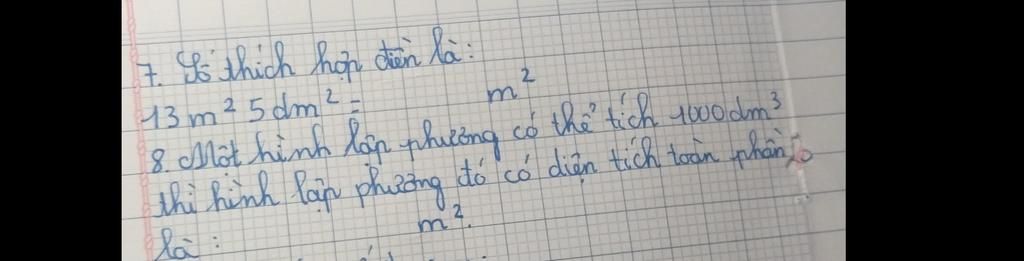 7. Số thích hợp điền là:
13 m² 5 dm² = m²
8. Một hình lập phương có thể tích 1000 dm³
thì hình lập phương đó có diện tích toàn phần
là: m².